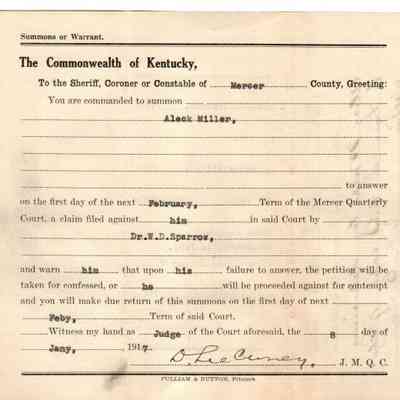 Summons or Warrant.
The Commonwealth of Kentucky,
To the Sheriff, Coroner or Constable of Mercer County, Greeting:
You are commanded to summon
Aleck Miller,
to answer
on the first day of the next February, Term of the Mercer Quarterly
Court, a claim filed against him in said Court by
Dr.W.D.Sparrow,
and warn him that upon his failure to answer, the petition will be
taken for confessed, or he will be proceeded against for contempt
and you will make due return of this summons on the first day of next
Feby, Term of said Court.
Witness my hand as Judge of the Court aforesaid, the 8 day of
Jany, 1917.
J. M. Q. C.
PULLIAM & DUTTON, Printers